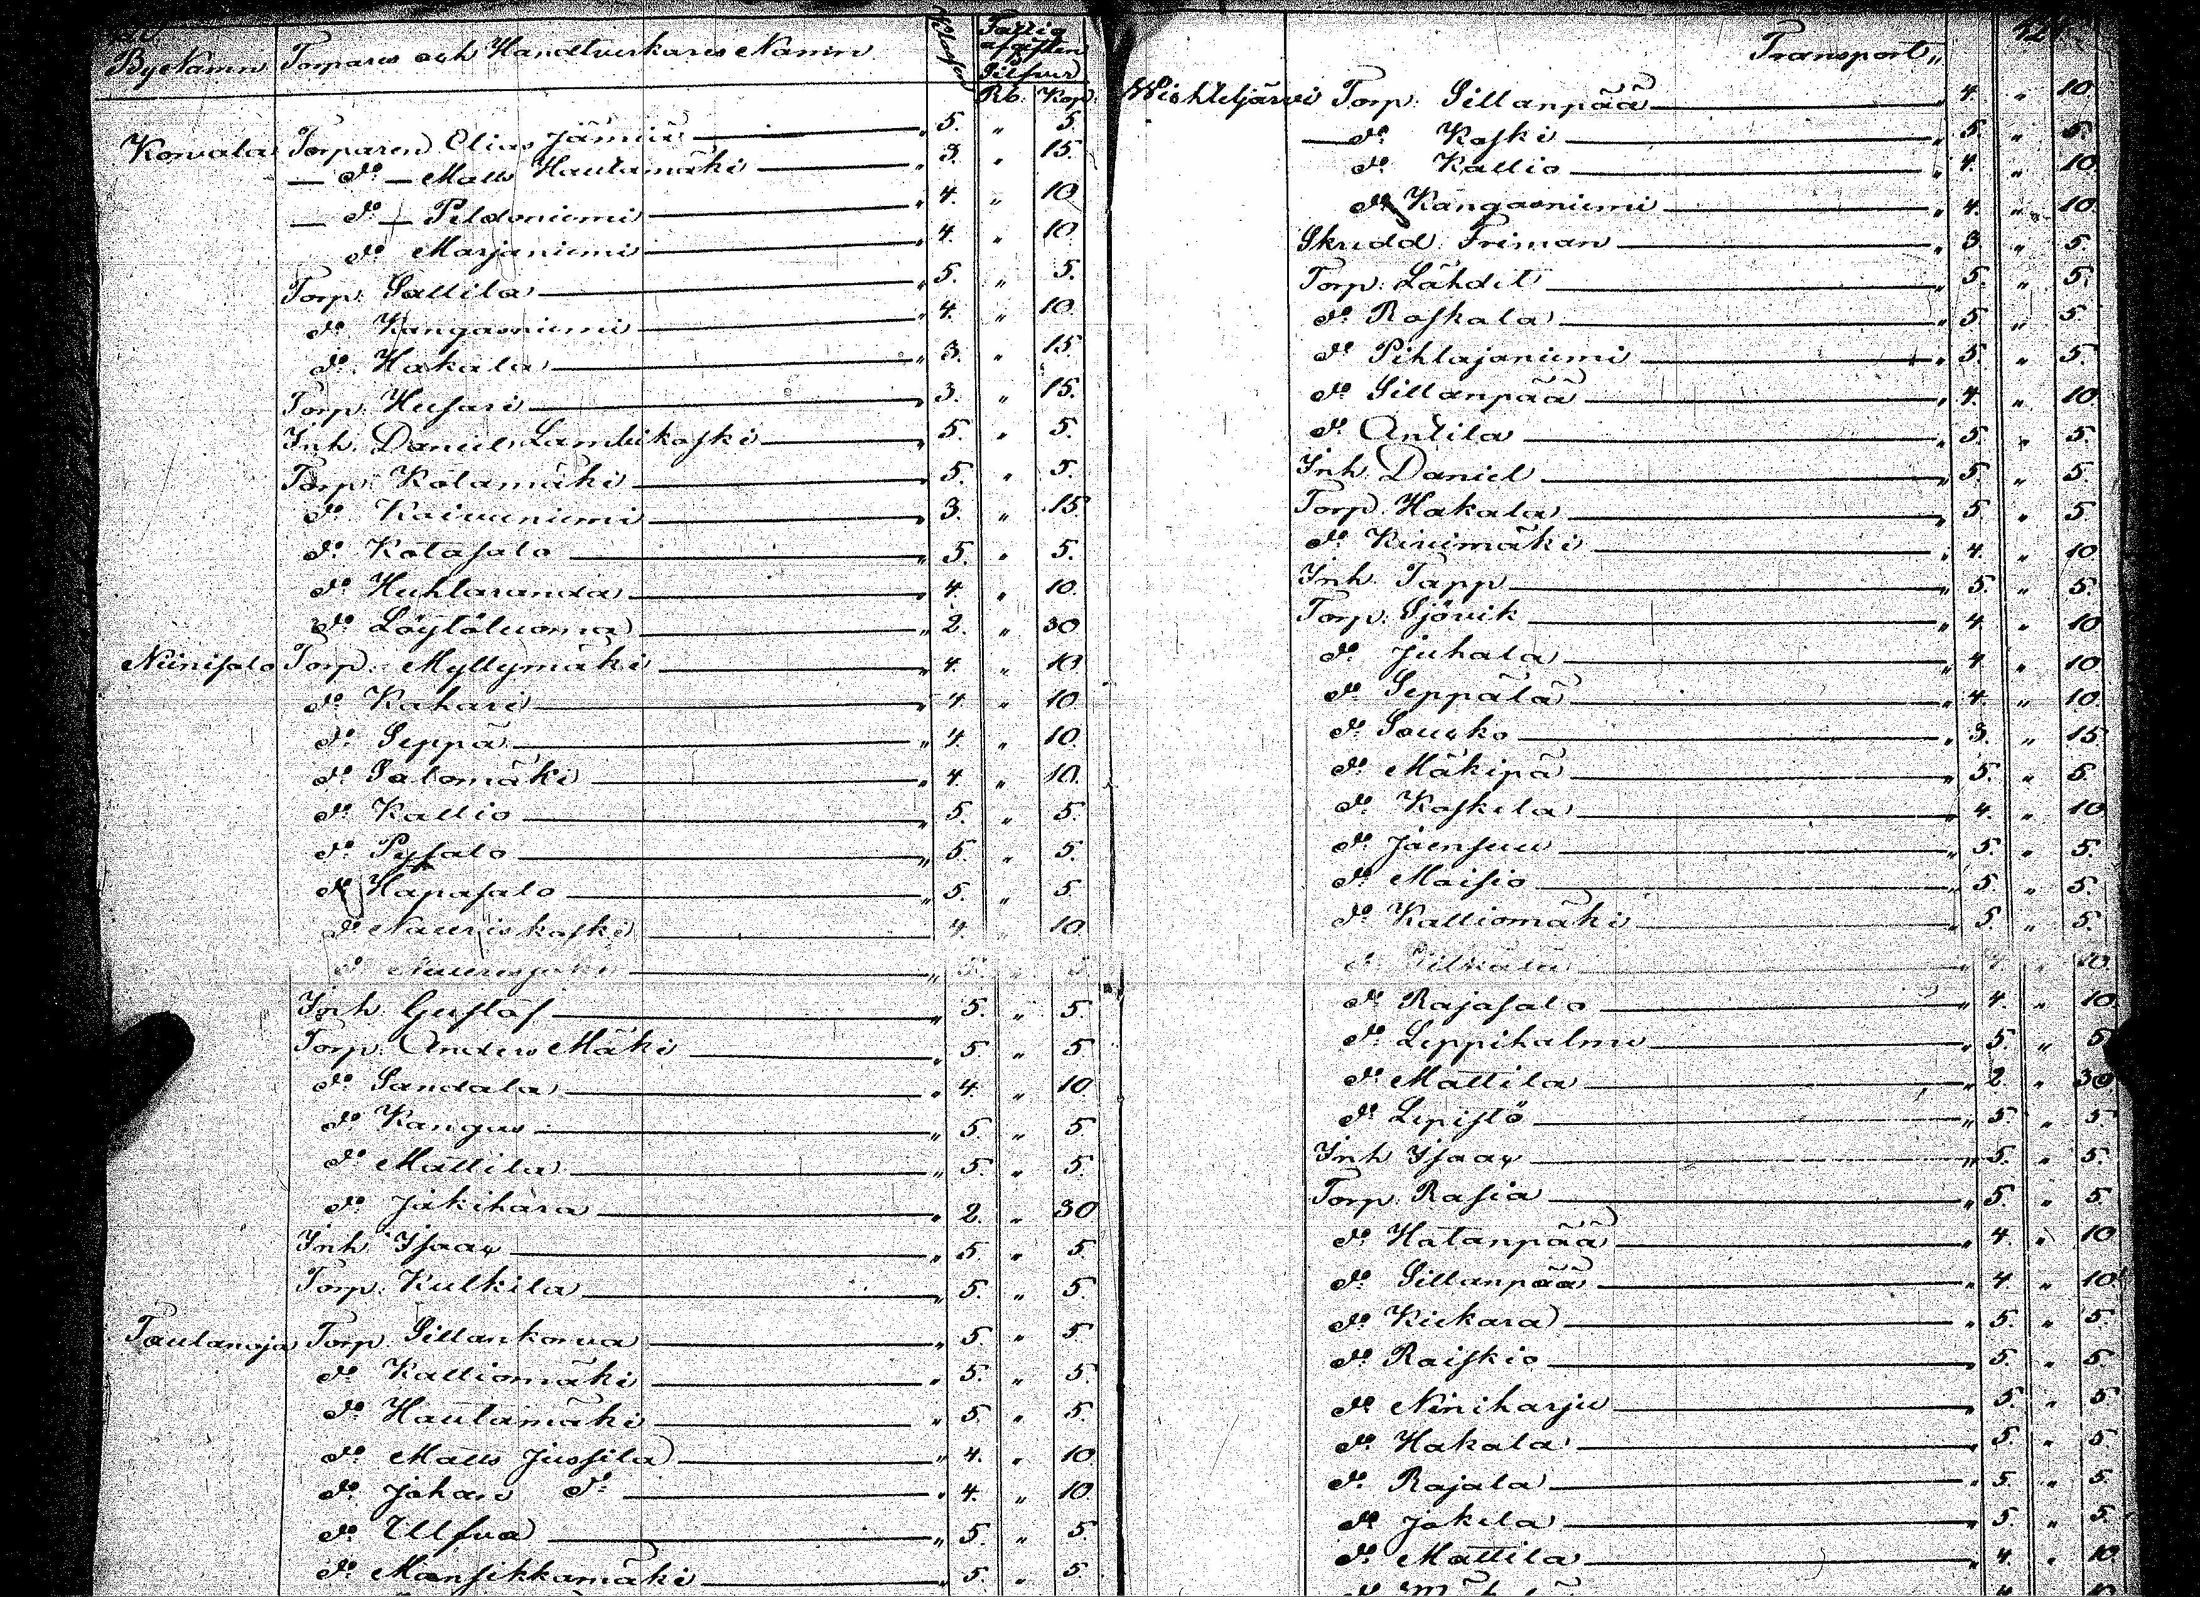 By Namn Torpares och Handtverkares Namn Klassen Fattig afgiften i Silfver
Rb. Kop.
Korvala Torparen Elias Jämiä " 5. " 5.
— do — Matts Hautamäki " 3. " 15.
— do — Peldoniemi " 4. " 10
do Marjaniemi " 4. " 10.
Torp: Sattila " 5. " 5.
do Kangasniemi " 4. " 10.
do Hakala " 3. " 15.
Torp: Husari " 3. " 15.
Inh. Daniel Lambikoski " 5. " 5.
Torp: Kotamäki " 5. " 5.
do Kaivuniemi " 3. " 15
do Kotasalo " 5. " 5.
do Huhtaranda " 4. " 10.
do Löytöluoma " 2. " 30
Niinisalo Torp. Myllymäki " 4. " 10
do Kahari " 4 " 10
do Seppä " 4. " 10.
do Salomäki " 4. " 10.
do Kallio " 5. " 5.
do Pysalo " 5. " 5.
do Hapasalo " 5. " 5
do Nauriskoski 4. " 10.
Inh. Gustaf " 5. " 5
Torp. Anders Mäki " 5 " 5
do Sandala " 4. " 10
do Kangas " 5. " 5
do Mattila " 5 " 5
do Jäkihara " 2. " 30
Inh. Isaax " 5 " 5
Torp. Kulkila " 5. " 5
Taulanoja Torp. Sillankorva " 5 " 5
do Kalliomäki " 5. " 5
do Hautamäki " 5 " 5.
do Matts Jussila " 4. " 10
do Johan do " 4. " 10
do Ullfva " 5. " 5
do Mansikkamäki " 5. " 5
Transport "
Wichteljärvi Torp. Sillanpää " 4. " 10
do Koski " 5. " 5.
do Kallio " 4. " 10
do Kangasniemi " 4. " 10
Skredd. Friman " 3. " 5.
Torp: Lähdet " 5. " 5.
do Roskala " 5 " 5
do Pihlajaniemi " 5. " 5.
do Sillanpää " 4. " 10
do Antila " 5. " 5.
Inh. Daniel " 5. " 5.
Torp. Hakala " 5 " 5
do Kivimäki " 4. " 10
Inh. Tapp " 5. " 5.
Torp. Sjövik " 4. " 10
do Juhala " 4 " 10
do Seppälä " 4. " 10.
do Souxko " 3. " 15
do Mäkipä " 5. " 5
do Koskela " 4. " 10
do Jaensuu " 5. " 5.
do Maisio " 5 " 5.
do Kalliomäki " 5. " 5.
do " 10
do Rajasalo " 4. " 10
do Leppihalme " 5. " 5
do Mattila " 2. " 30
do Lepistö " 5. " 5.
Inh. Isaax " 5. " 5.
Torp. Rasia " 5. " 5
do Hatanpää " 4. " 10
do Sillanpää " 4 " 10
do Kiekara " 5. " 5
do Raiskio " 5. " 5
do Niniharju " 5. " 5
do Hakala " 5. " 5
do Rajala " 5 " 5
do Jokela " 5. " 5
do Mattila " 4. " 10